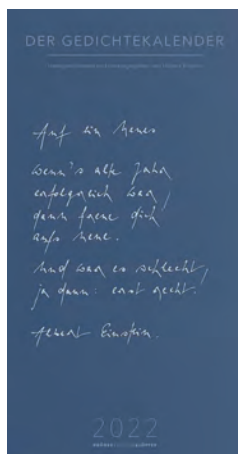 DER GEDICHTEKALENDER
Auf ein Neues
wenn's alte Jahr
erfolgreich war,
dann freue dich
aufs neue.
Und war es schlecht,
ja dann: erst recht.
Albert Einstein.
2022